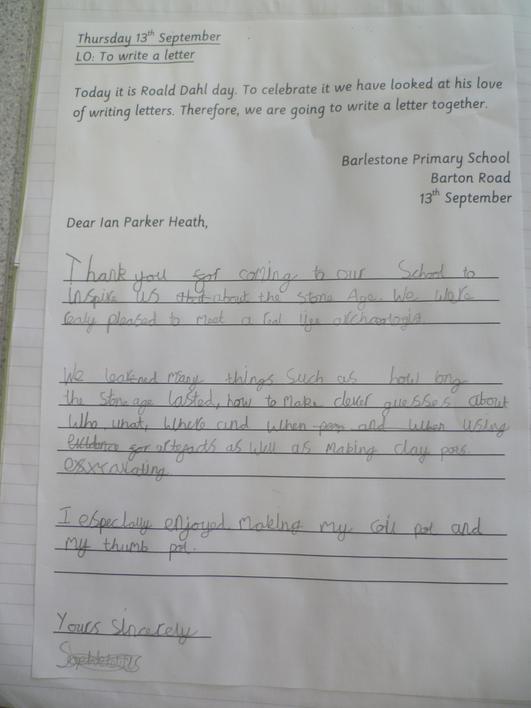 Thursday 13th September
LO: To write a letter
Today it is Roald Dahl day. To celebrate it we have looked at his love
of writing letters. Therefore, we are going to write a letter together.
Barlestone Primary School
Barton Road
13th September
Dear Ian Parker Heath,
Thank you for coming to our School to
inspire us about the stone Age. We were
realy pleased to meet a real life archaologist.
We learned many things such as how long
the stone age lasted, how to make clever guesses about
who, what, where and when and when using
evidence for artefacts as well as making clay pots.
I especially enjoyed making my coil pot and
my thumb pot.
Yours sincerely